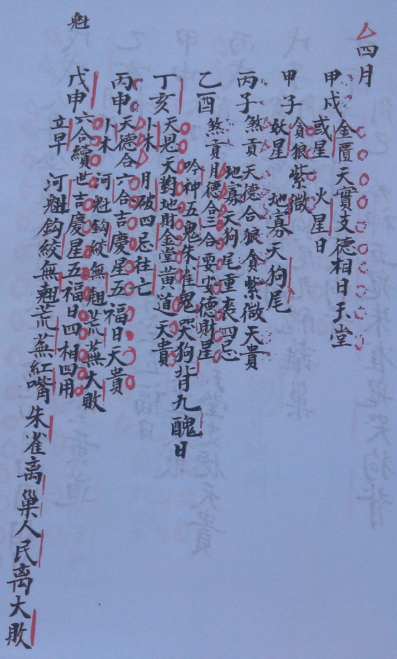 四月
甲戌 金匱 天寶支德相日玉堂
或星 火星日
甲子 貪狼紫微
妖星 地寡天狗尾
丙子 煞貢天德合狼貪紫微天貴
地寡天狗尾重喪四忌
乙酉 煞貢月德合三合要安德財星
吟神五鬼朱雀鬼哭狗背九醜日
丁亥 天恩天豹地財金堂黃道天貴
小木 月破四忌往亡
丙申 天德合六合吉慶星五福日天貴
小木 河魁鈎絞無翹荒蕪大敗
戊申 六合續世吉慶星五福日四相四用
立早 河魁鈎絞無翹荒蕪紅嘴朱雀离巢人民离大敗
魁